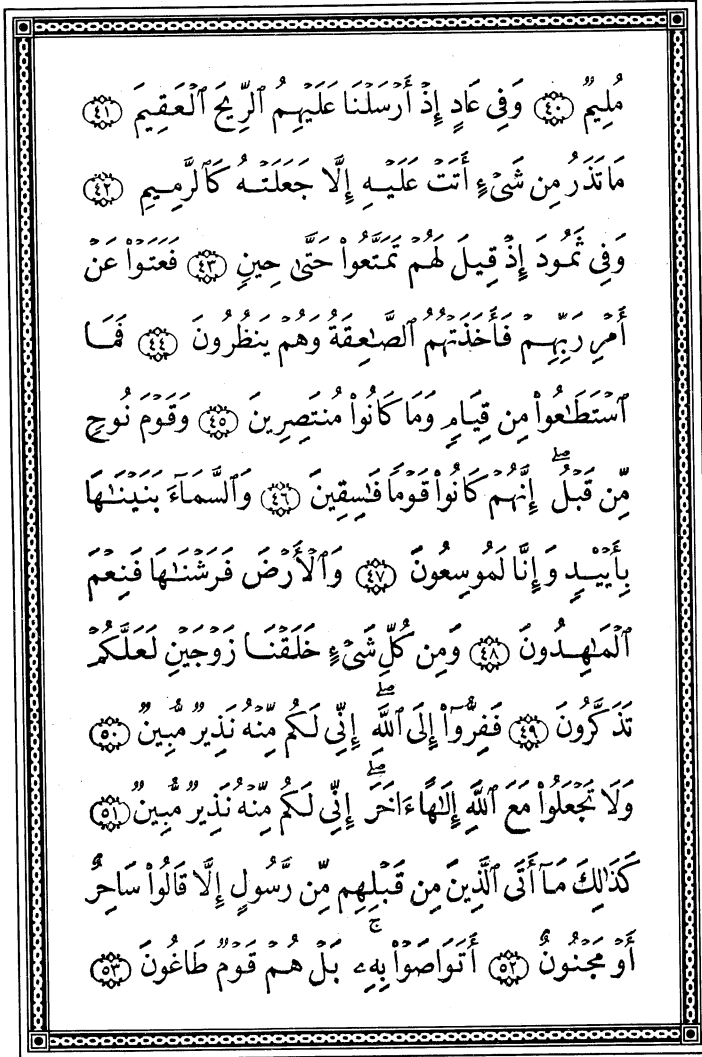 مُلِيمٌ ﴿٤٠﴾ وَفِى عَادٍ إِذْ أَرْسَلْنَا عَلَيْهِمُ ٱلرِّيحَ ٱلْعَقِيمَ ﴿٤١﴾
مَا تَذَرُ مِن شَىْءٍ أَتَتْ عَلَيْهِ إِلَّا جَعَلَتْهُ كَٱلرَّمِيمِ ﴿٤٢﴾
وَفِى ثَمُودَ إِذْ قِيلَ لَهُمْ تَمَتَّعُوا۟ حَتَّىٰ حِينٍ ﴿٤٣﴾ فَعَتَوْا۟ عَنْ
أَمْرِ رَبِّهِمْ فَأَخَذَتْهُمُ ٱلصَّٰعِقَةُ وَهُمْ يَنظُرُونَ ﴿٤٤﴾ فَمَا
ٱسْتَطَٰعُوا۟ مِن قِيَامٍ وَمَا كَانُوا۟ مُنتَصِرِينَ ﴿٤٥﴾ وَقَوْمَ نُوحٍ
مِّن قَبْلُ ۖ إِنَّهُمْ كَانُوا۟ قَوْمًا فَٰسِقِينَ ﴿٤٦﴾ وَٱلسَّمَآءَ بَنَيْنَٰهَا
بِأَيْي۟دٍ وَإِنَّا لَمُوسِعُونَ ﴿٤٧﴾ وَٱلْأَرْضَ فَرَشْنَٰهَا فَنِعْمَ
ٱلْمَٰهِدُونَ ﴿٤٨﴾ وَمِن كُلِّ شَىْءٍ خَلَقْنَا زَوْجَيْنِ لَعَلَّكُمْ
تَذَكَّرُونَ ﴿٤٩﴾ فَفِرُّوٓا۟ إِلَى ٱللَّهِ ۖ إِنِّى لَكُم مِّنْهُ نَذِيرٌ مُّبِينٌ ﴿٥٠﴾
وَلَا تَجْعَلُوا۟ مَعَ ٱللَّهِ إِلَٰهًا ءَاخَرَ ۖ إِنِّى لَكُم مِّنْهُ نَذِيرٌ مُّبِينٌ ﴿٥١﴾
كَذَٰلِكَ مَآ أَتَى ٱلَّذِينَ مِن قَبْلِهِم مِّن رَّسُولٍ إِلَّا قَالُوا۟ سَاحِرٌ
أَوْ مَجْنُونٌ ﴿٥٢﴾ أَتَوَاصَوْا۟ بِهِۦ ۚ بَلْ هُمْ قَوْمٌ طَاغُونَ ﴿٥٣﴾